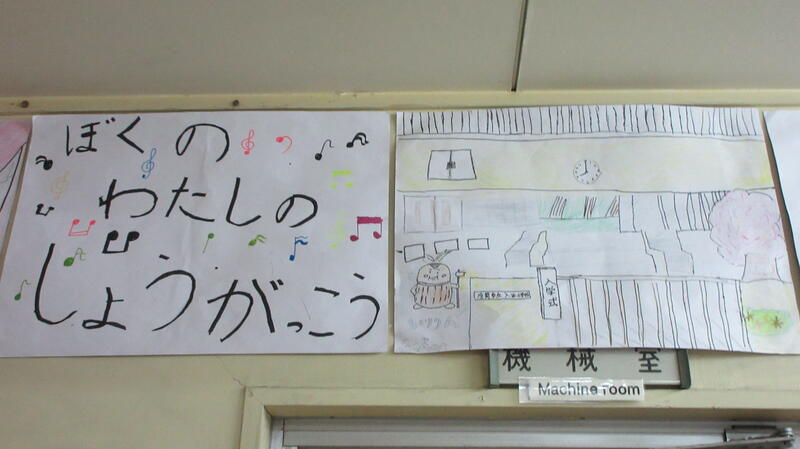 ぼくの
わたしの
しょうがっこう
入学式
機械室
Machine room